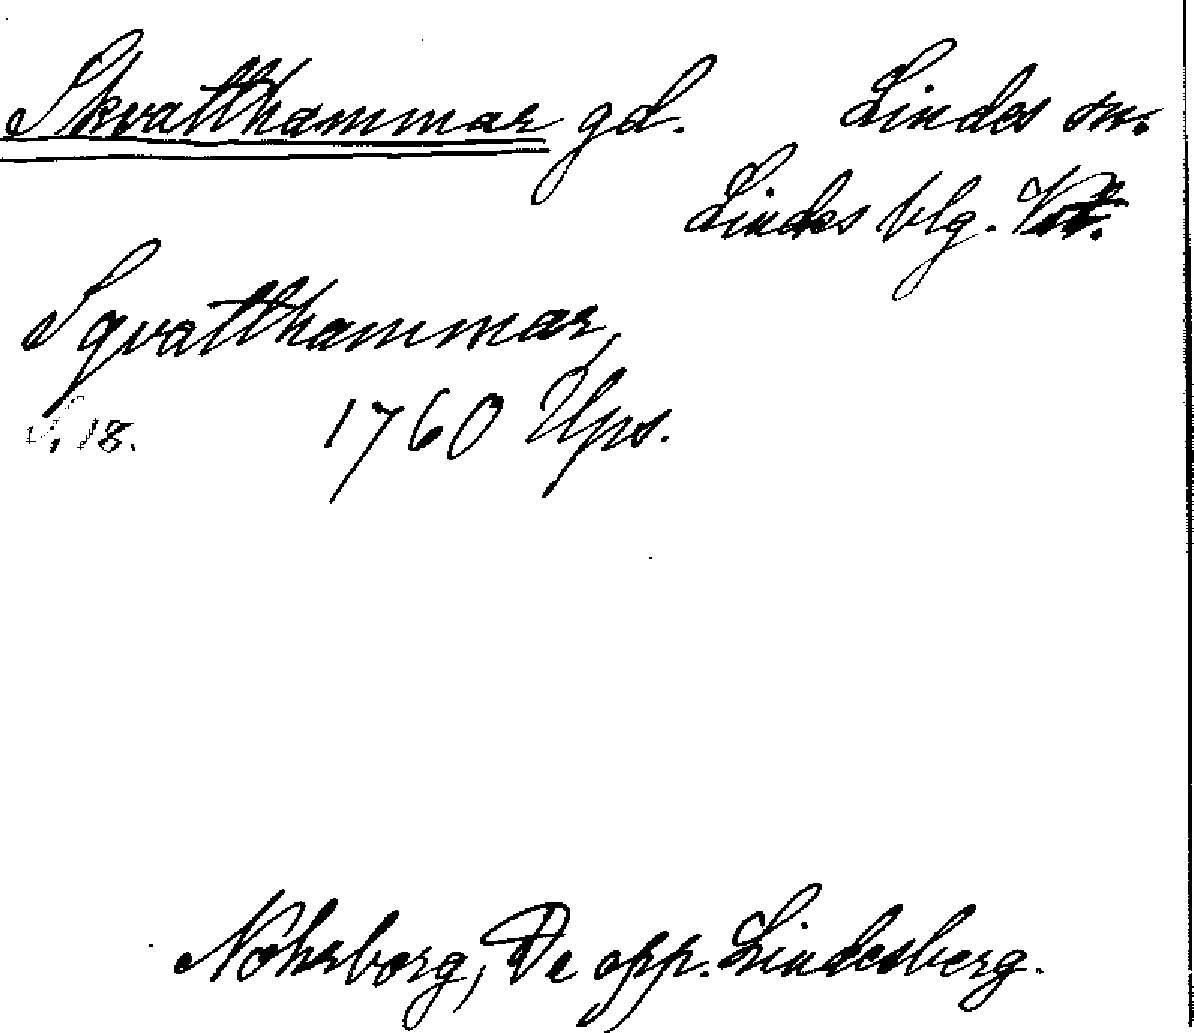 Skvatthammar gd. Lindes sn.
Lindes blg.
Sqvatthammar,
S. 18. 1760 Ups.
Nohrborg, De opp. Lindesberg.